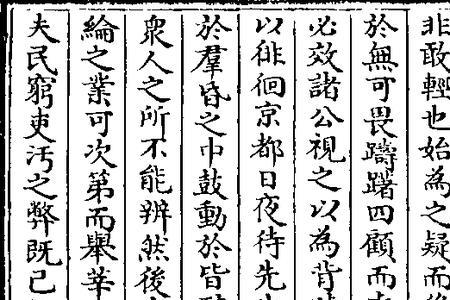 非敢輕也始為之疑而
於無可畏躊躇四顧而
必效諸公視之以為背
以徘徊京都日夜待先
於羣昏之中鼓動於皆
衆人之所不能辨然後
綸之業可次第而舉莘
夫民窮吏汚之弊既已